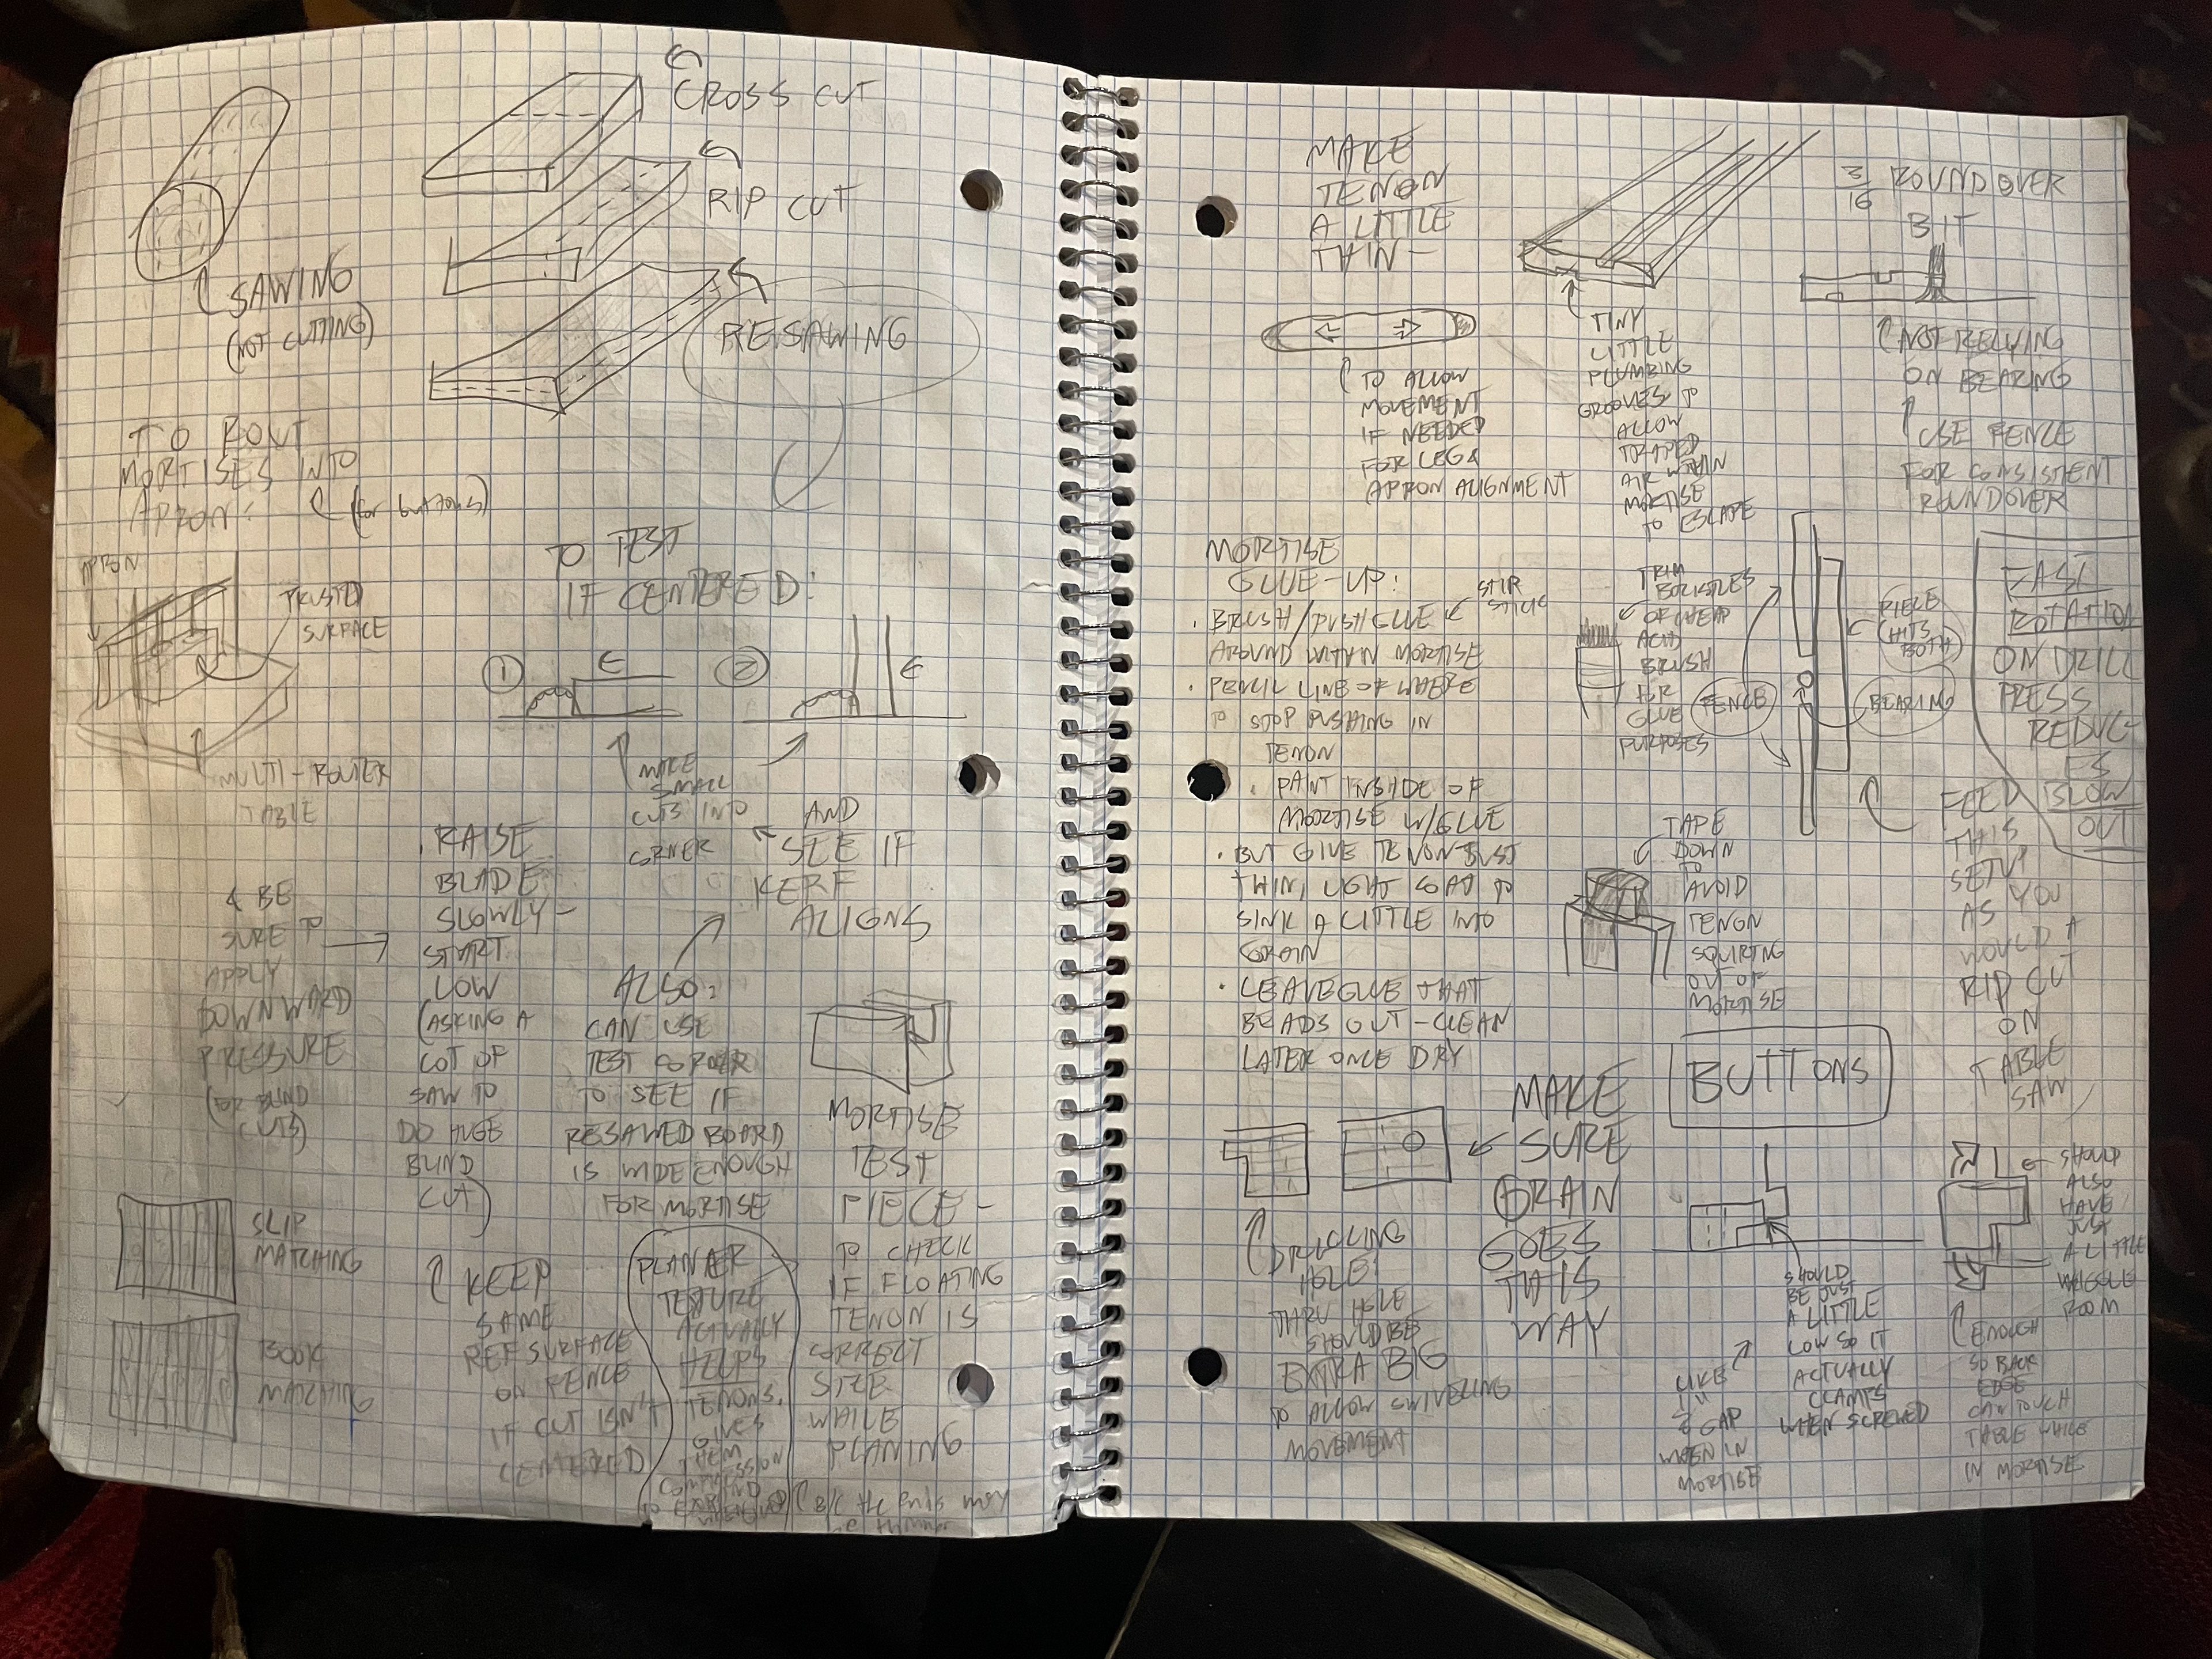 CROSS CUT
RIP CUT
RESAWING
SAWING
(NOT CUTTING)
TO ROUT
MORTISES INTO
APRON:
(for buttons)
APRON
TRUSTED
SURFACE
MULTI-ROUTER
TABLE
TO TEST
IF CENTERED:
1
2
MAKE
SMALL
CUTS INTO
CORNER
AND
SEE IF
KERF
ALIGNS
& BE
SURE TO
APPLY
DOWNWARD
PRESSURE
(FOR BLIND
CUTS)
. RAISE
BLADE
SLOWLY -
START
LOW
(ASKING A
LOT OF
SAW TO
DO HUGE
BLIND
CUT)
KEEP
SAME
REF SURFACE
ON FENCE
IF CUT ISN'T
CENTERED
SLIP
MATCHING
BOOK
MATCHING
ALSO:
CAN USE
TEST CORNER
TO SEE IF
RESAWED BOARD
IS WIDE ENOUGH
FOR MORTISE
PLANER
TEXTURE
ACTUALLY
HELPS
TENONS,
GIVES
THEM
COMPRESSION
MORTISE
TEST
PIECE -
TO CHECK
IF FLOATING
TENON IS
CORRECT
SIZE
WHILE
PLANING
(B/c the ends may
be thinner
MAKE
TENON
A LITTLE
THIN -
TO ALLOW
MOVEMENT
IF NEEDED
FOR LEG &
APRON ALIGNMENT
TINY
LITTLE
PLUMBING
GROOVES TO
ALLOW
TRAPED
AIR WITHIN
MORTISE
TO ESCAPE
3/16 ROUNDOVER
BIT
NOT RELYING
ON BEARING
USE FENCE
FOR CONSISTENT
ROUNDOVER
MORTISE
GLUE-UP:
. BRUSH/PUSH GLUE
STIR
STICK
AROUND WITHIN MORTISE
. PENCIL LINE OF WHERE
TO STOP PUSHING IN
TENON
. PAINT INSIDE OF
MORTISE W/GLUE
. BUT GIVE TENON JUST
THIN, LIGHT COAT TO
SINK A LITTLE INTO
GRAIN
. LEAVE GLUE THAT
BEADS OUT - CLEAN
LATER ONCE DRY
TRIM
BRISTLES
OF CHEAP
ACID
BRUSH
FOR
GLUE
PURPOSES
FENCE
PIECE
(HITS
BOTH)
BEARING
EASE
ROTATION
ON DRILL
PRESS
REDUC-
ES
BLOW
OUT
FEED
THIS
SETUP
AS YOU
WOULD A
RIP CUT
ON
TABLE
SAW
TAPE
DOWN
TO
AVOID
TENON
SQUIRTING
OUT OF
MORTISE
BUTTONS
MAKE
SURE
GRAIN
GOES
THIS
WAY
DRILLING
HOLE:
THRU HOLE
SHOULD BE
EXTRA BIG
TO ALLOW SWIVELING
MOVEMENT
SHOULD
BE JUST
A LITTLE
LOW SO IT
ACTUALLY
CLAMPS
WHEN SCREWED
LIKE
GAP
WHEN IN
MORTISE
SHOULD
ALSO
HAVE
JUST
A LITTLE
WIGGLE
ROOM
ENOUGH
SO BACK
EDGE
CAN TOUCH
TABLE WHILE
IN MORTISE